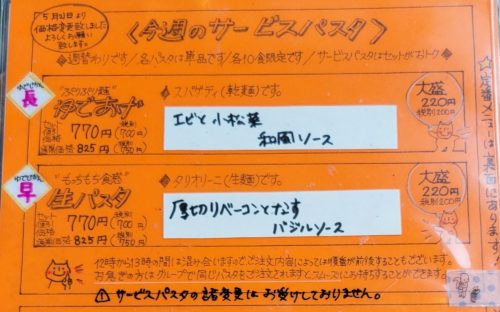 5月21日より
価格変更致しました
よろしくお願い
致します。
〈今週のサービスパスタ〉
◆週替わりです/各パスタは単品です/各10食限定です/サービスパスタはセットがおトク◆
ゆでじかん
長
"ぷりぷり麺"
ゆであげ
セット価格 770円 (税別700円)
単品価格 825円 (税別750円)
◆スパゲティ(乾麺)です。
エビと小松菜
和風ソース
大盛
220円
税別200円
ゆでじかん
早
"もっちもち食感"
生パスタ
セット価格 770円 (税別700円)
825円 (税別750円)
◆タリオリーニ(生麺)です。
厚切りベーコンとなす
バジルソース
大盛
220円
税別200円
12時から13時の間は混み合いますのでご注文内容によっては順番が前後することもございます。
お急ぎの方はグループで同じパスタをご注文されますとスムーズにお持ちすることができます。
⚠サービスパスタの諸変更はお受けしておりません。
☆定番メニューは裏面にあります!